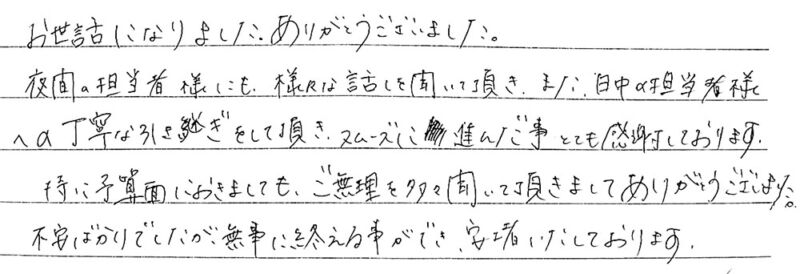 お世話になりました。ありがとうございました。
夜間の担当者様にも、様々な話しを聞いて頂き、また、日中の担当者様
への丁寧な引き継ぎをして頂き、スムーズに進んだ事とても感謝しております。
特に予算面におきましても、ご無理を多々聞いて頂きましてありがとうございました。
不安ばかりでしたが、無事に終える事ができ、安堵いたしております。